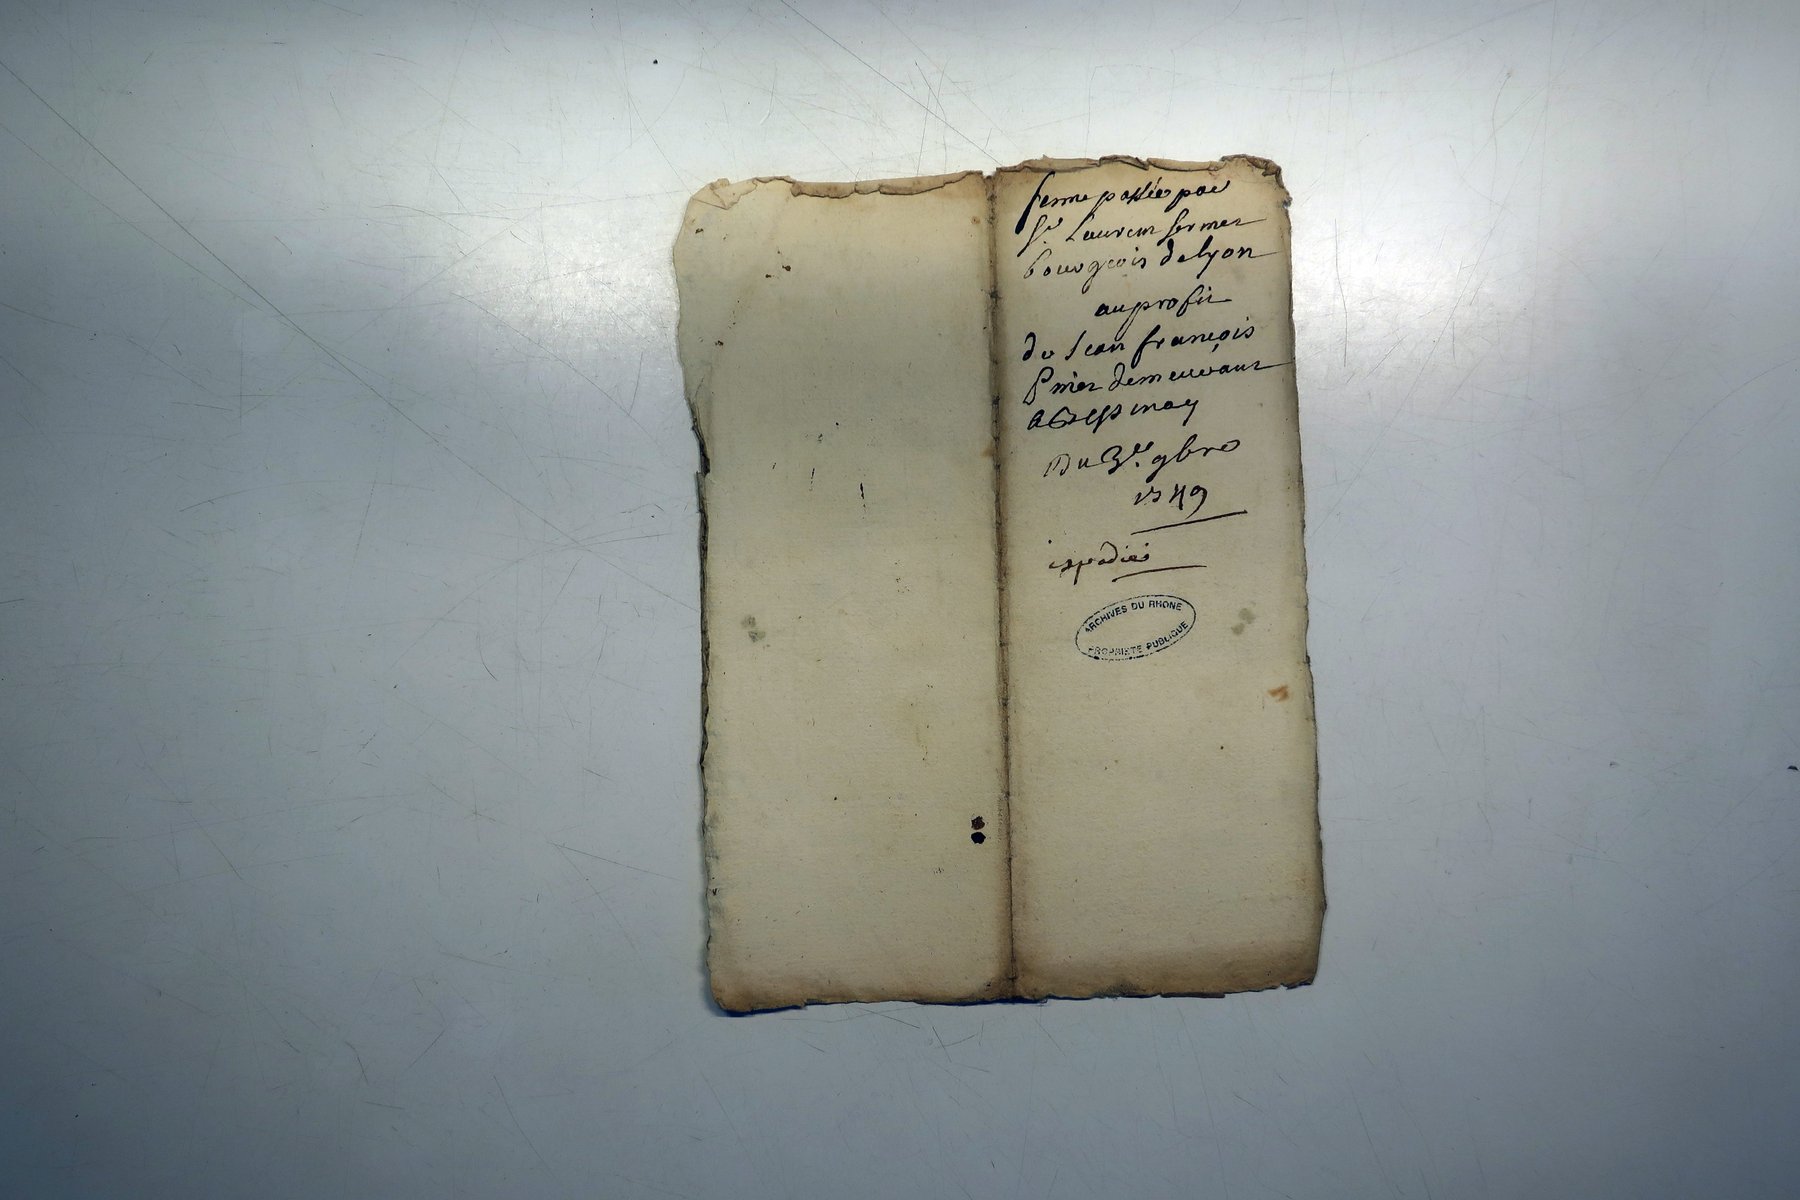 ferme passée par
Sr. Laurent fermer
bourgeois de lyon
au profit
de Jean françois
demeurant
a
Du 3e. 9bre
1749
expediée
ARCHIVES DU RHONE
PROPRIETE PUBLIQUE